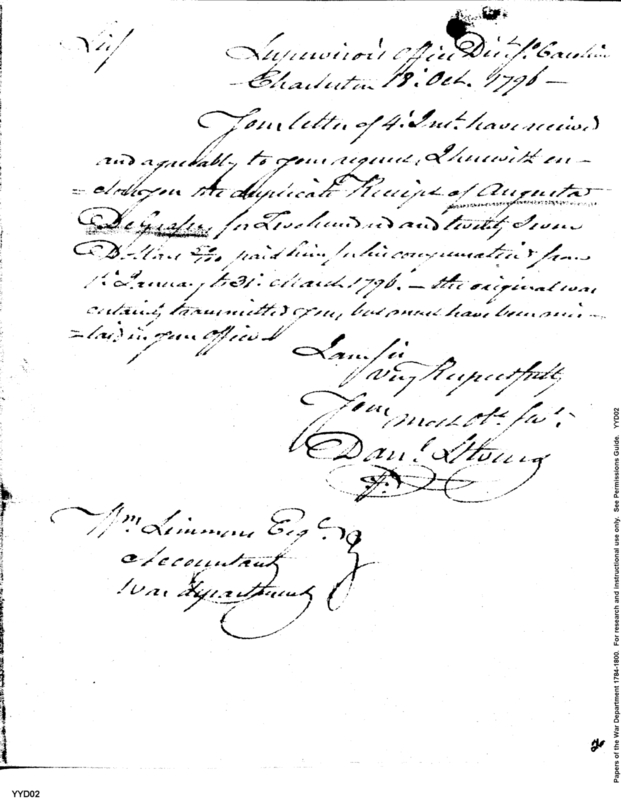 Sir
Supervisor's Office Dist. So. Carolina
Charleston 18. Oct. 1796 —
Your letter of 4. Inst. have received
and agreeably to your request, I herewith en-
=close you the duplicate Receipt of Augusta
De Grasse for Two hundred and twenty seven
Dollars paid him for his compensation from
1st January to 31st March 1796. — the original was
certainly transmitted you, but must have been mis-
=laid in your Office
I am Sir
very Respectfully
Your
most Obt. Svt.
Danl. Stevens
Wm. Simmons Esqr.
Accountant
War department
Papers of the War Department 1784-1800. For research and instructional use only. See Permissions Guide. YYD02
YYD02